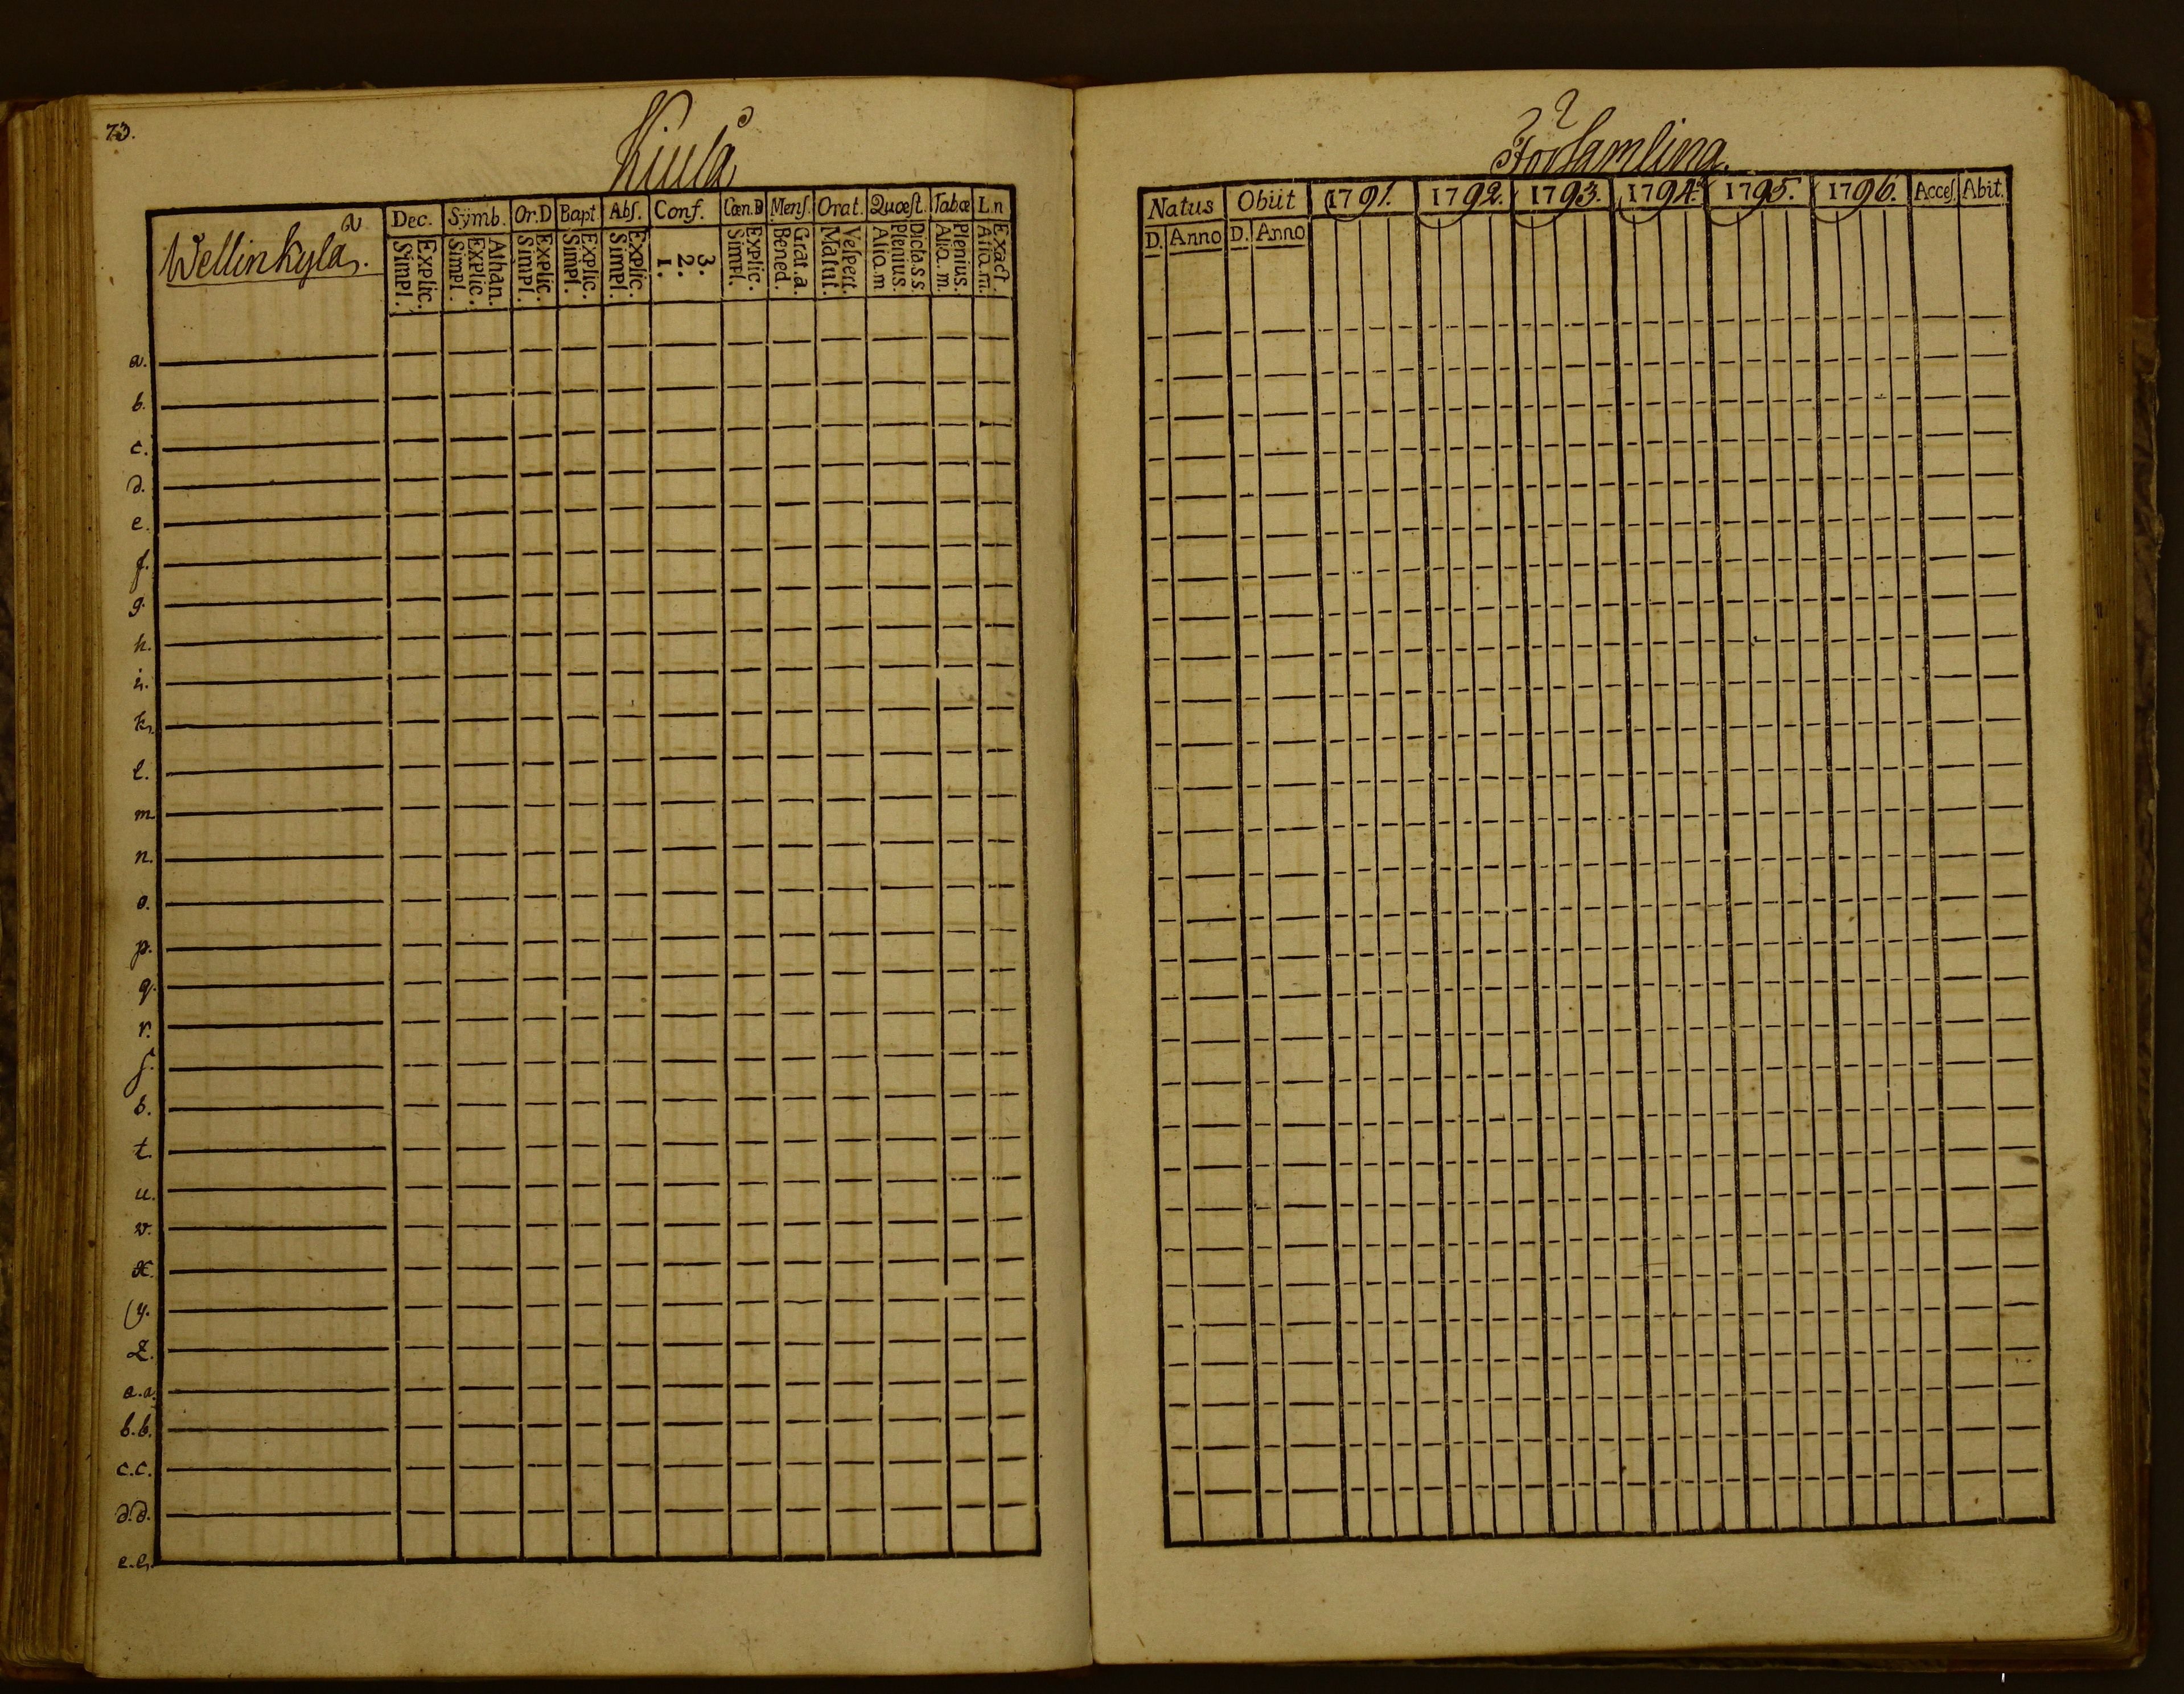 73.
Kiula
Församling.
Wellinkylä.
Dec. Sÿmb. Or.D Bapt Abſ. Conf. Cœn.D Menſ. Orat. Quœſt. Tabœ L.n
Simpl. Explic. Simpl. Explic. Athan. Simpl. Explic. Simpl. Explic. Simpl. Explic. 1. 2. 3. Simpl. Explic. Bened. Grat.a. Matut. Veſpert. Alia.m Plenius. Dicta.s s. Alia.m. Plenius. Alia.m. Exact.
Natus Obiit 1791. 1792. 1793. 1794. 1795. 1796. Acceſ. Abit.
D. Anno D. Anno
a.
b.
c.
d.
e.
f.
g.
h.
i.
k.
l.
m.
n.
o.
p.
q.
r.
ſ.
t.
u.
v.
x.
y.
z.
a.a.
b.b.
c.c.
d.d.
e.e.